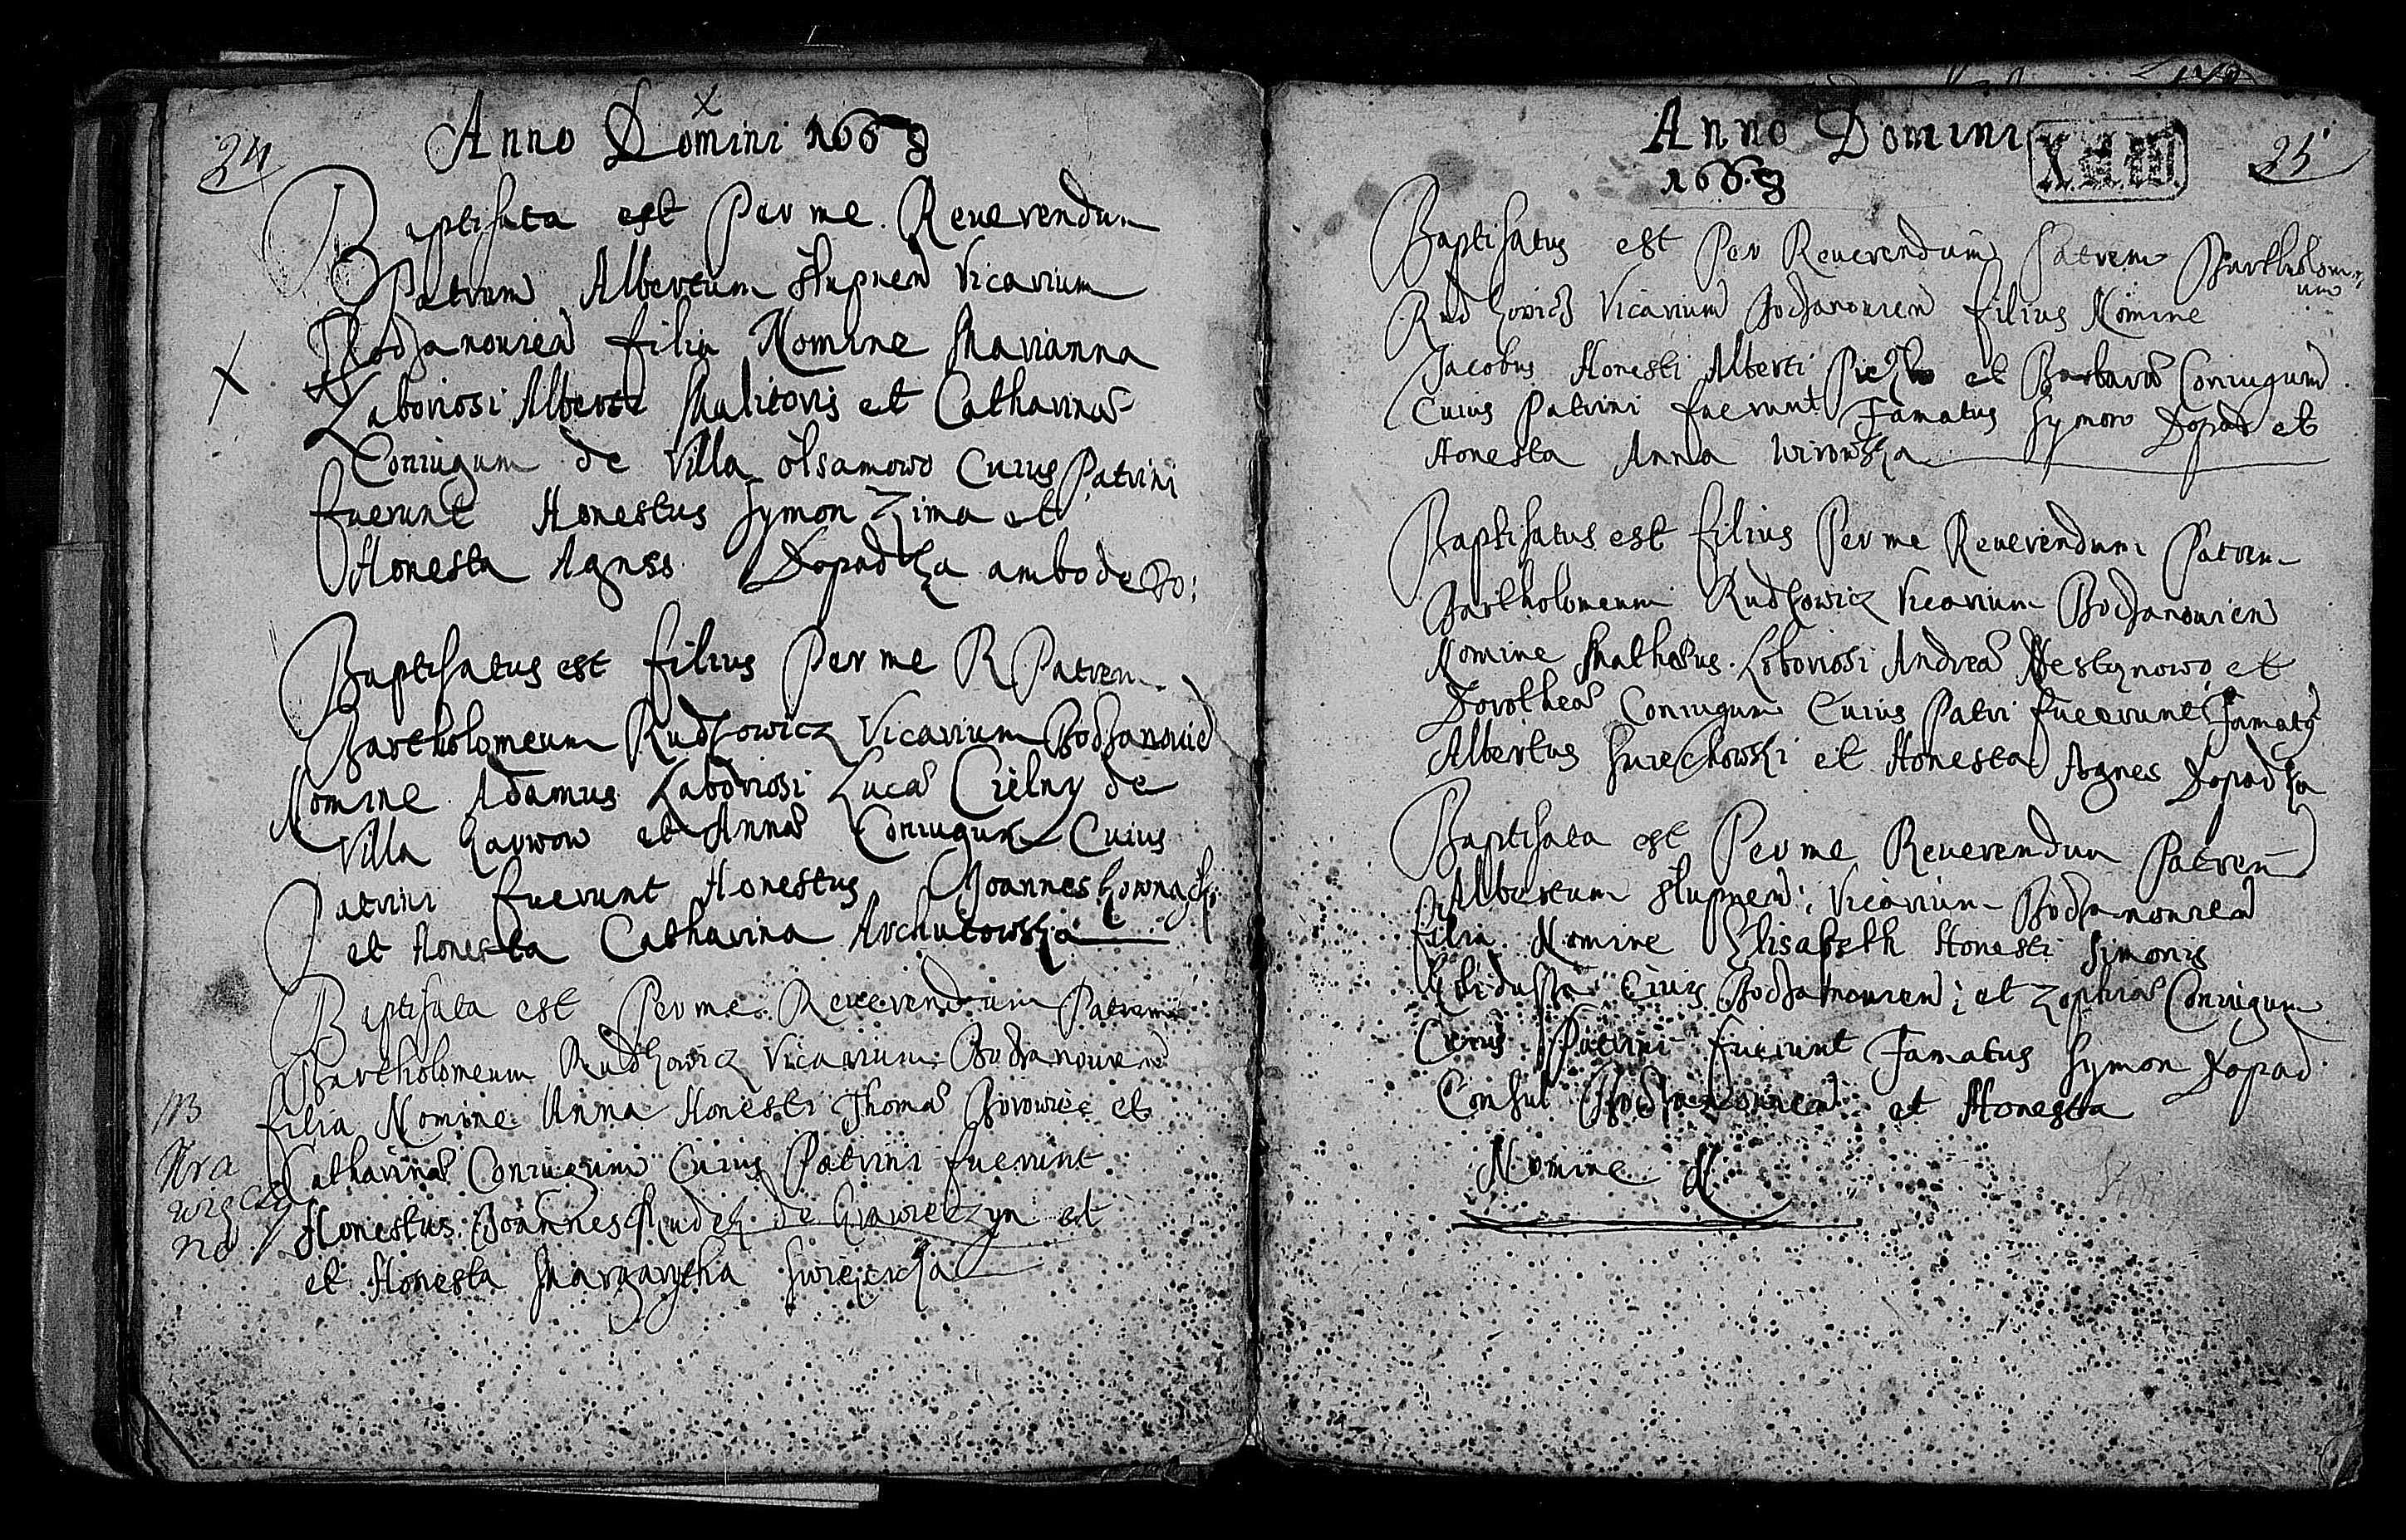 24
Anno Domini 1669
Baptisata est Per me Reuerendum
Patrem Albertum Slupnen Vicarium
Bodzanouien filia Nomine Marianna
Laboriosi Alberti Mulitoris et Catharinæ
Coniugum de Villa Olsamowo Cuius Patrini
fuerunt Honestus Symon Zima et
Honesta Agnes Dopadka ambo de Bo:
Baptisatus est filius Per me R Patrem
Bartholomeum Rudkowicz Vicarium Bodzanouien
Nomine Adamus Laboriosi Lucæ Cielny de
Villa et Annæ Coniugum Cuius
Patrini fuerunt Honestus Joannes
et Honesta Catharina Archutowska
Baptisata est Per me Reuerendum Patrem
Bartholomeum Rudkowicz Vicarium Bodzanouien
filia Nomine Anna Honesti Thomæ Borowiec et
Catharinæ Coniugum Cuius Patrini fuerunt
Honestus Joannes Rudek de Krawieczyn et
et Honesta Margarytha Swięcicka
Anno Domini
1669
25
Baptisatus est Per Reuerendum Patrem Bartholom
eum
Rudkowicz Vicarium Bodzanouien filius Nomine
Jacobus Honesti Alberti et Barbaræ Coniugum
Cuius Patrini fuerunt Famatus Symon Dopad et
Honesta Anna Wirowska
Baptisatus est filius Per me Reuerendum Patrem
Bartholomeum Rudkowicz Vicarium Bodzanouien
Nomine Matheus Laboriosi Andreæ et
Dorotheæ Coniugum Cuius Patri fuerunt Famatus
Albertus Swiechowski et Honesta Agnes Dopadka
Baptisata est Per me Reuerendum Patrem
Albertum Slupnen: Vicarium Bodzanouien
filia Nomine Elisabeth Honesti Simonis
Ciuis Bodzanouien: et Zophiæ Coniugum
Cuius Patrini fuerunt Famatus Symon Dopad
Consul Bodzanouien et Honesta
Nomine N